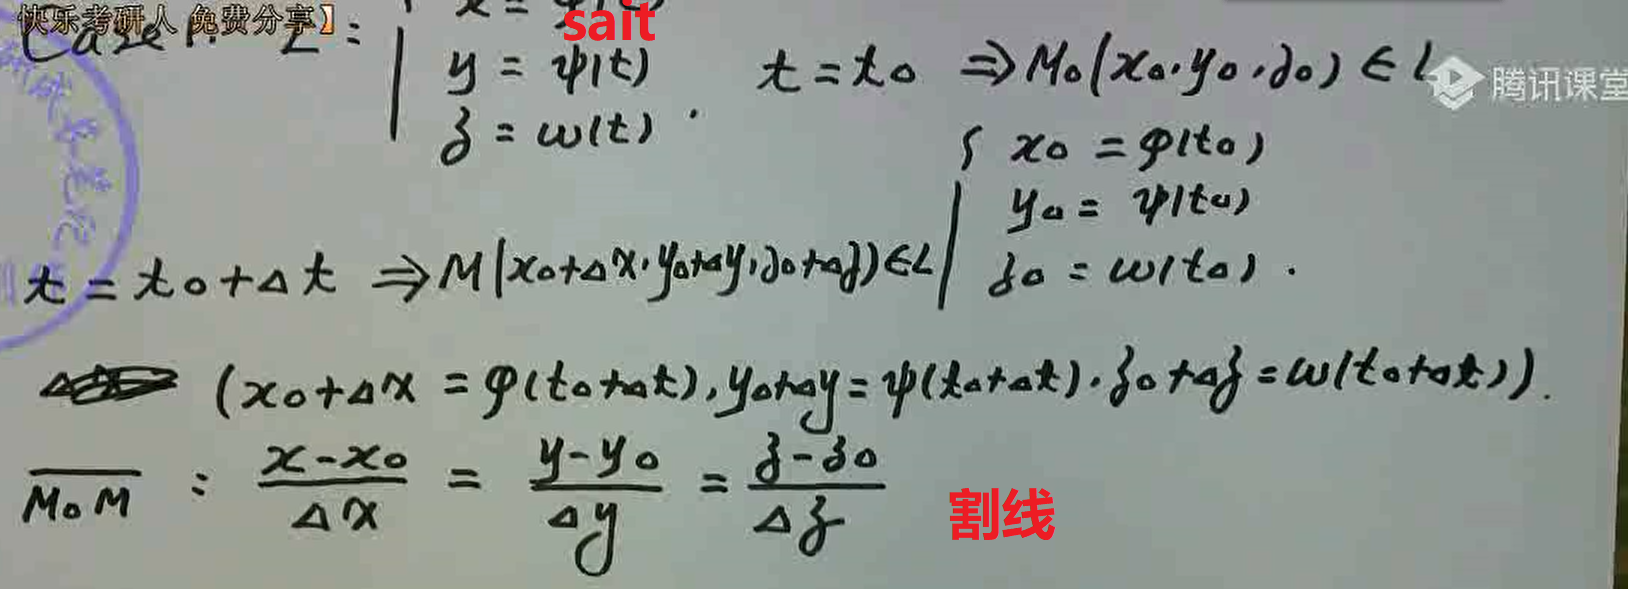 快乐考研人 免费分享】
sait
Case 1. L:
y = ψ(t)
z = ω(t).
t = t₀ ⇒ M₀(x₀, y₀, z₀) ∈ L
腾讯课堂
{ x₀ = φ(t₀)
y₀ = ψ(t₀)
z₀ = ω(t₀).
t = t₀+Δt ⇒ M(x₀+Δx, y₀+Δy, z₀+Δz) ∈ L
(x₀+Δx = φ(t₀+Δt), y₀+Δy = ψ(t₀+Δt), z₀+Δz = ω(t₀+Δt)).
M₀M : (x-x₀)/Δx = (y-y₀)/Δy = (z-z₀)/Δz 割线